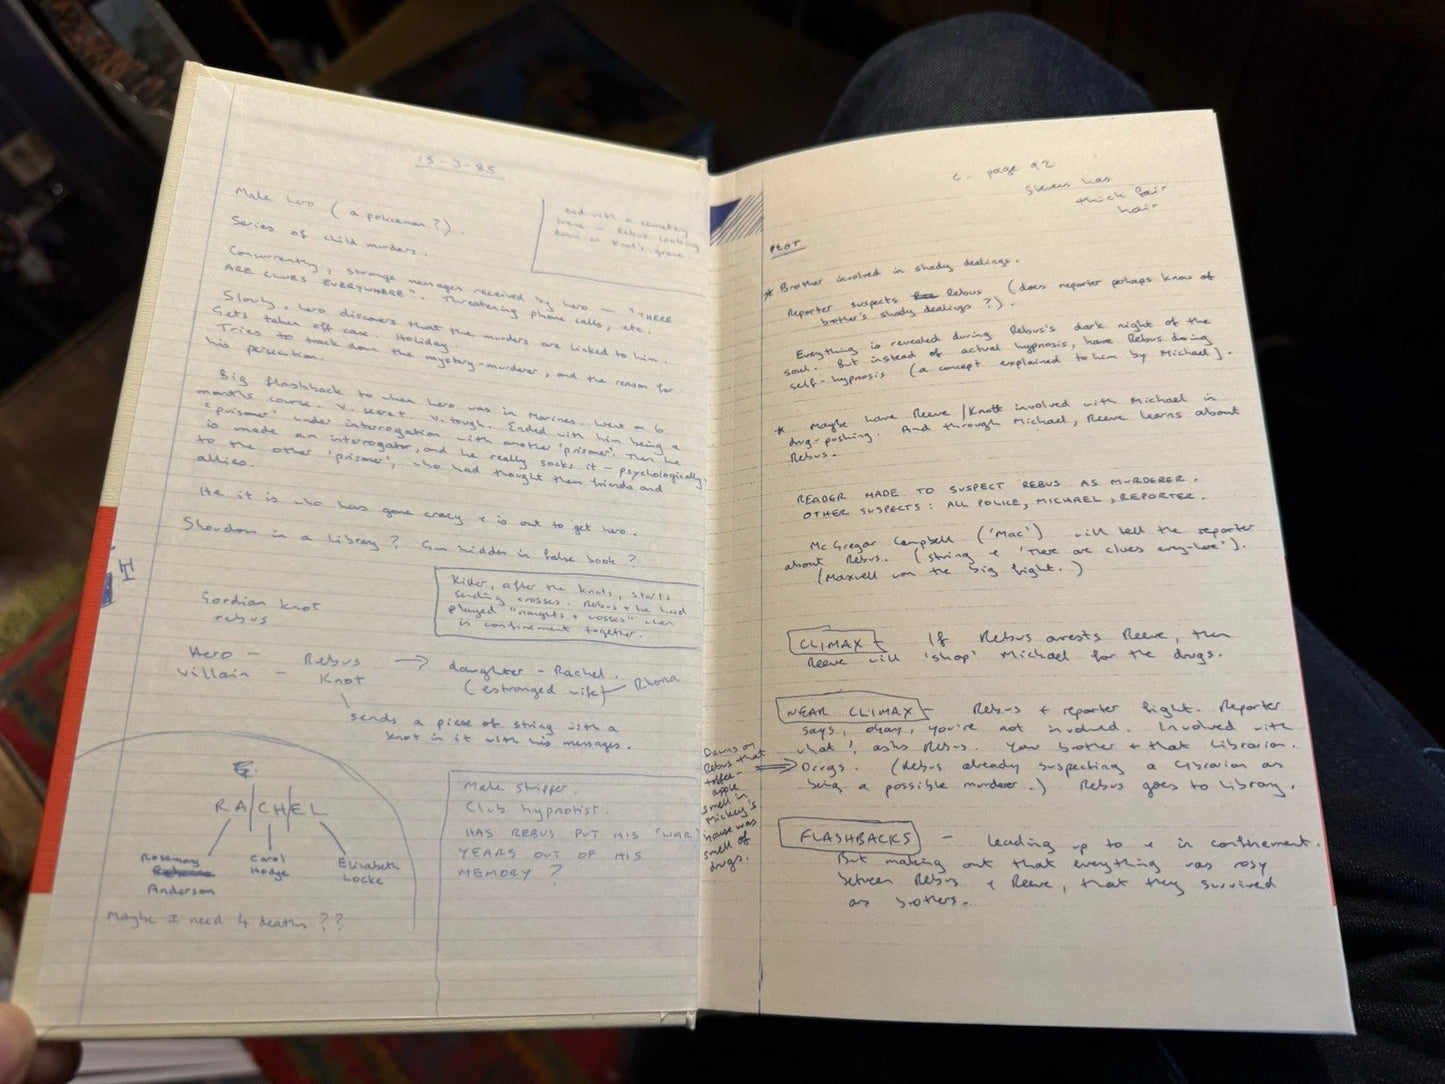 15-3-85
Male hero (a policeman?).
Series of child murders.
end with a cemetery
scene - Rebus looking
down on Knot's grave.
Concurrently, strange messages received by hero - "THERE
ARE CLUES EVERYWHERE". Threatening phone calls, etc.
Slowly, hero discovers that the murders are linked to him.
Gets taken off case. Holiday.
Tries to track down the mystery-murderer, and the reason for
his persecution.
Big flashback to when hero was in Marines. Went on 6
months course. V. secret. V. tough. Ended with him being a
'prisoner' under interrogation with another 'prisoner'. Then he
is made an interrogator, and he really socks it - psychologically-
to the other 'prisoner', who had thought them friends and
allies.
He it is who has gone crazy & is out to get hero.
Showdown in a library? Gun hidden in false book?
Killer, after the knots, starts
sending crosses. Rebus & he had
played "noughts & crosses" when
in confinement together.
Gordian knot
rebus
Hero - Rebus → daughter - Rachel.
Villain - Knot (estranged wife) Rhona
sends a piece of string with a
knot in it with his messages.
RA/CH/EL
Rosemary
Rebecca
Anderson
Carol
Hodge
Elizabeth
Locke
Maybe I need 4 deaths??
Male stripper.
Club hypnotist.
HAS REBUS PUT HIS 'WAR'
YEARS OUT OF HIS
MEMORY?
c. page 92
Stevens has
thick fair
hair
PLOT
* Brother involved in shady dealings.
Reporter suspects Rebus (does reporter perhaps know of
brother's shady dealings?).
Everything is revealed during Rebus's dark night of the
soul. But instead of actual hypnosis, have Rebus doing
self-hypnosis (a concept explained to him by Michael).
* Maybe have Reeve/Knott involved with Michael in
drug-pushing. And through Michael, Reeve learns about
Rebus.
READER MADE TO SUSPECT REBUS AS MURDERER.
OTHER SUSPECTS: ALL POLICE, MICHAEL, REPORTER.
McGregor Campbell ('Mac') will tell the reporter
about Rebus. (string & 'There are clues everywhere').
(Maxwell won the big fight.)
CLIMAX - If Rebus arrests Reeve, then
Reeve will 'shop' Michael for the drugs.
NEAR CLIMAX - Rebus & reporter fight. Reporter
says, okay, you're not involved. Involved with
what?, asks Rebus. Your brother & that librarian.
Drugs. (Rebus already suspecting a librarian as
being a possible murderer.) Rebus goes to library.
Dawns on
Rebus that
toffee-
apple
smell in
Mickey's
house was
smell of
drugs.
FLASHBACKS - leading up to & in confinement.
But making out that everything was rosy
between Rebus & Reeve, that they survived
as brothers.